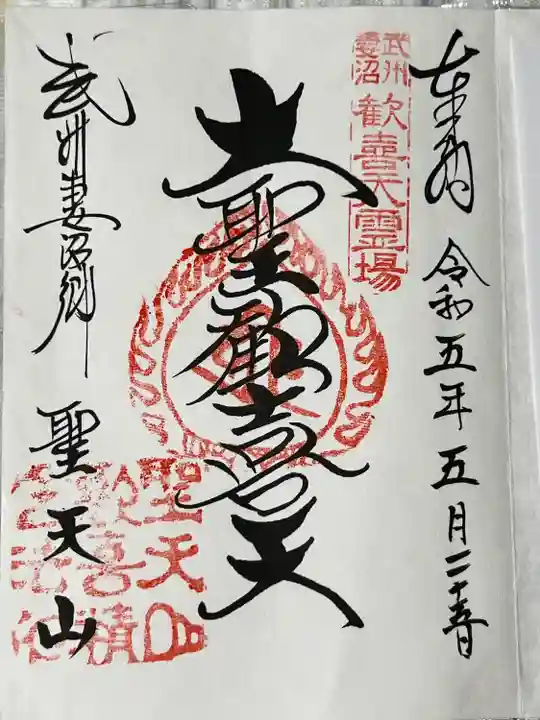 奉拝
令和五年五月二十五日
武州
妻沼
歓喜天霊場
大聖歓喜天
武州妻沼郷
聖天山
聖天山
歓喜